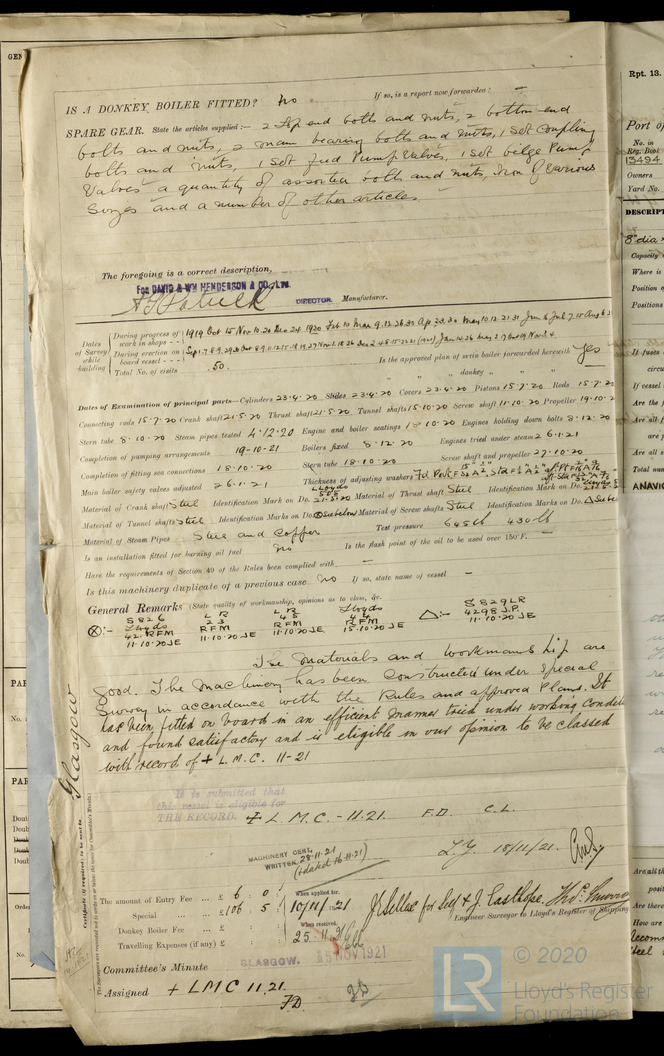 IS A DONKEY BOILER FITTED? no If so, is a report now forwarded? –
SPARE GEAR. State the articles supplied:— 2 Top end bolts and nuts, 2 bottom end
bolts and nuts, 2 main bearing bolts and nuts, 1 set coupling
bolts and nuts, 1 set feed Pump Valves, 1 set bilge Pump
Valves a quantity of assorted bolts and nuts, Iron of various
Sizes and a number of other articles.
The foregoing is a correct description,
FOR DAVID & WM HENDERSON & CO. LTD.
DIRECTOR. Manufacturer.
Dates of Survey while building
During progress of work in shops - - 1919 Oct 15 Nov 10.20 Dec 24 1920 Feb 10 May 9.12.26.30
During erection on board vessel - - -
Total No. of visits 50.
Is the approved plan of main boiler forwarded herewith Yes
" " " donkey " " "
Dates of Examination of principal parts—Cylinders 23.4.20 Slides 23.4.20 Covers 23.4.20 Pistons 15.7.20 Rods 15.7.20
Connecting rods 15.7.20 Crank shaft 21.5.20 Thrust shaft 21.5.20 Tunnel shafts 15.10.20 Screw shaft 11.10.20 Propeller 19.10.2
Stern tube 8.10.20 Steam pipes tested 4.12.20 Engine and boiler seatings 18.10.20 Engines holding down bolts 8.12.20
Completion of pumping arrangements 19-10-21 Boilers fixed 8.12.20 Engines tried under steam 26.1.21
Completion of fitting sea connections 18.10.20 Stern tube 18.10.20 Screw shaft and propeller 27.10.20
Main boiler safety valves adjusted 26.1.21 Thickness of adjusting washers
Material of Crank shaft Steel Identification Mark on Do. LLOYDS 505 21.5.20 Material of Thrust shaft Steel Identification Mark on Do.
Material of Tunnel shafts Steel Identification Marks on Do. ⊗ See below Material of Screw shafts Steel Identification Marks on Do. △ See be
Material of Steam Pipes Steel and Copper Test pressure 645 lb 430 lb
Is an installation fitted for burning oil fuel no Is the flash point of the oil to be used over 150°F. –
Have the requirements of Section 49 of the Rules been complied with –
Is this machinery duplicate of a previous case no If so, state name of vessel –
General Remarks (State quality of workmanship, opinions as to class, &c.
⊗:- 5826 Lloyds 42.RFM 11.10.20 JE
LR 23 RFM 11.10.20 JE
LR 45 RFM 11.10.20 JE
Lloyds 46 RFM 15.10.20 JE
△:- 5829LR 4298 J.P. 11.10.20 JE
The materials and workmanship are
good. The machinery has been constructed under Special
Survey in accordance with the Rules and approved Plans. It
has been fitted on board in an efficient manner tried under working condit
and found satisfactory and is eligible in our opinion to be classed
with record of + L.M.C. 11-21
Glasgow
It is submitted that
this vessel is eligible for
THE RECORD. + L.M.C. - 11.21. F.D. C.L.
15/11/21.
MACHINERY CERT.
WRITTEN 28-11-21
(dated 16-11-21)
The amount of Entry Fee ... £ 6 : 0 : When applied for,
Special ... £ 106 : 5 : 10/11/1921
Donkey Boiler Fee ... £ : : When received,
Travelling Expenses (if any) £ : : 25.11.21
for Self & J. Easthope.
Engineer Surveyor to Lloyd's Register of Shipping
Committee's Minute GLASGOW. 15 NOV 1921
Assigned + LMC 11.21.
FD.
© 2020
LR
Lloyd's Register
Foundation
Rpt. 13.
Port of
No. in
Reg. Book
13494
Owners
Yard No.
DESCRIPT
8"dia
Capacity
Where is
Position of
Positions
If fuses
If vessel
Are the f
Are all f
Total num